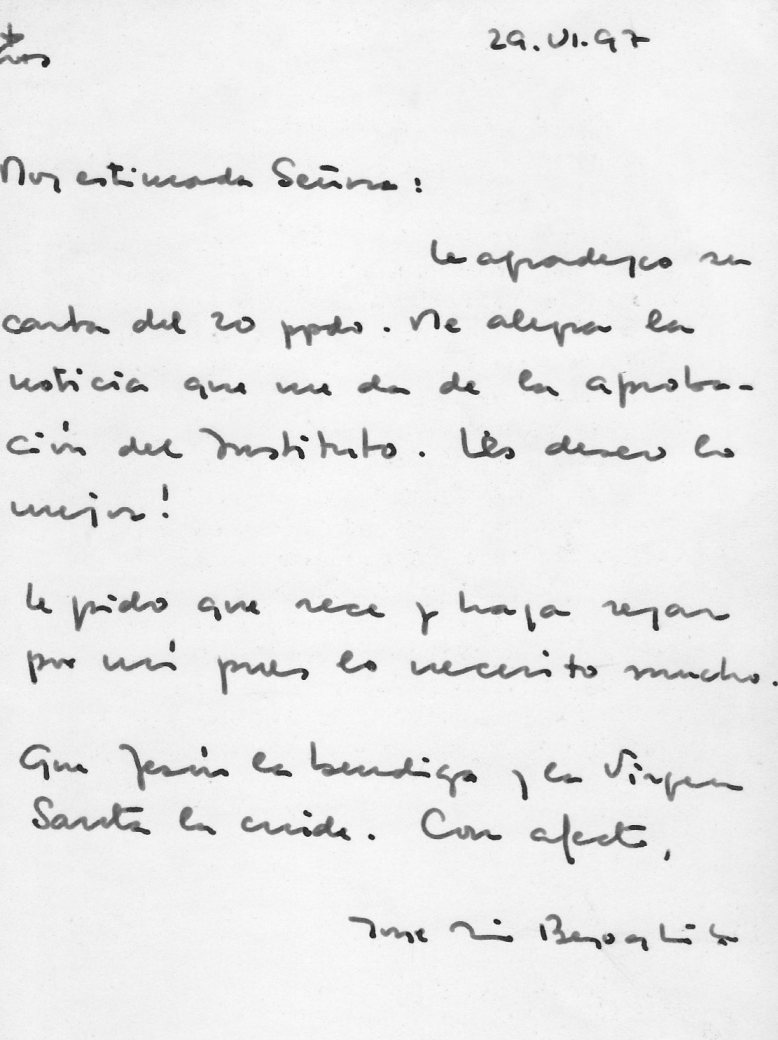 29.VI.97
Muy estimada Señora:
Le agradezco su
carta del 20 ppdo. Me alegra la
noticia que me da de la aproba-
ción del Instituto. Les deseo lo
mejor!
Le pido que rece y haga rezar
por mí pues lo necesito mucho.
Que Jesús la bendiga y la Virgen
Santa la cuide. Con afecto,
Jorge Mario Bergoglio